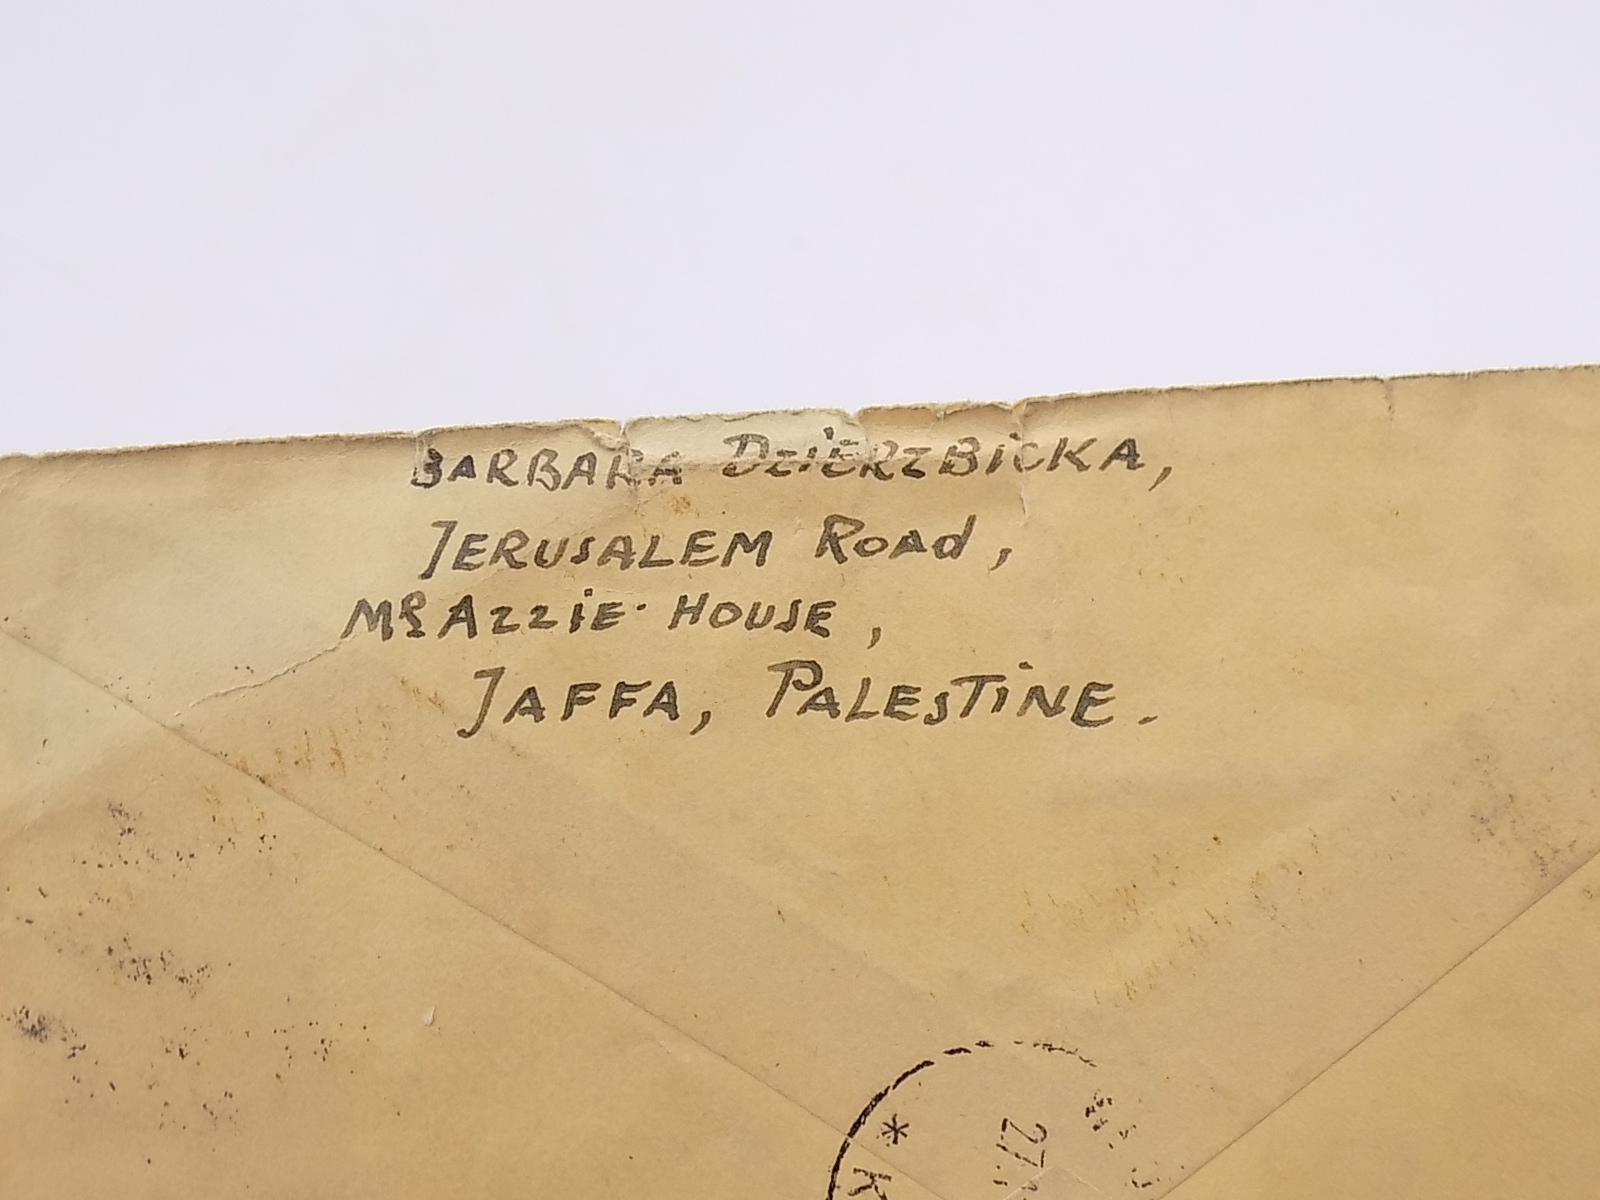 BARBARA DZIERZBICKA,
JERUSALEM ROAD,
MR AZZIE HOUSE,
JAFFA, PALESTINE.
* K
27